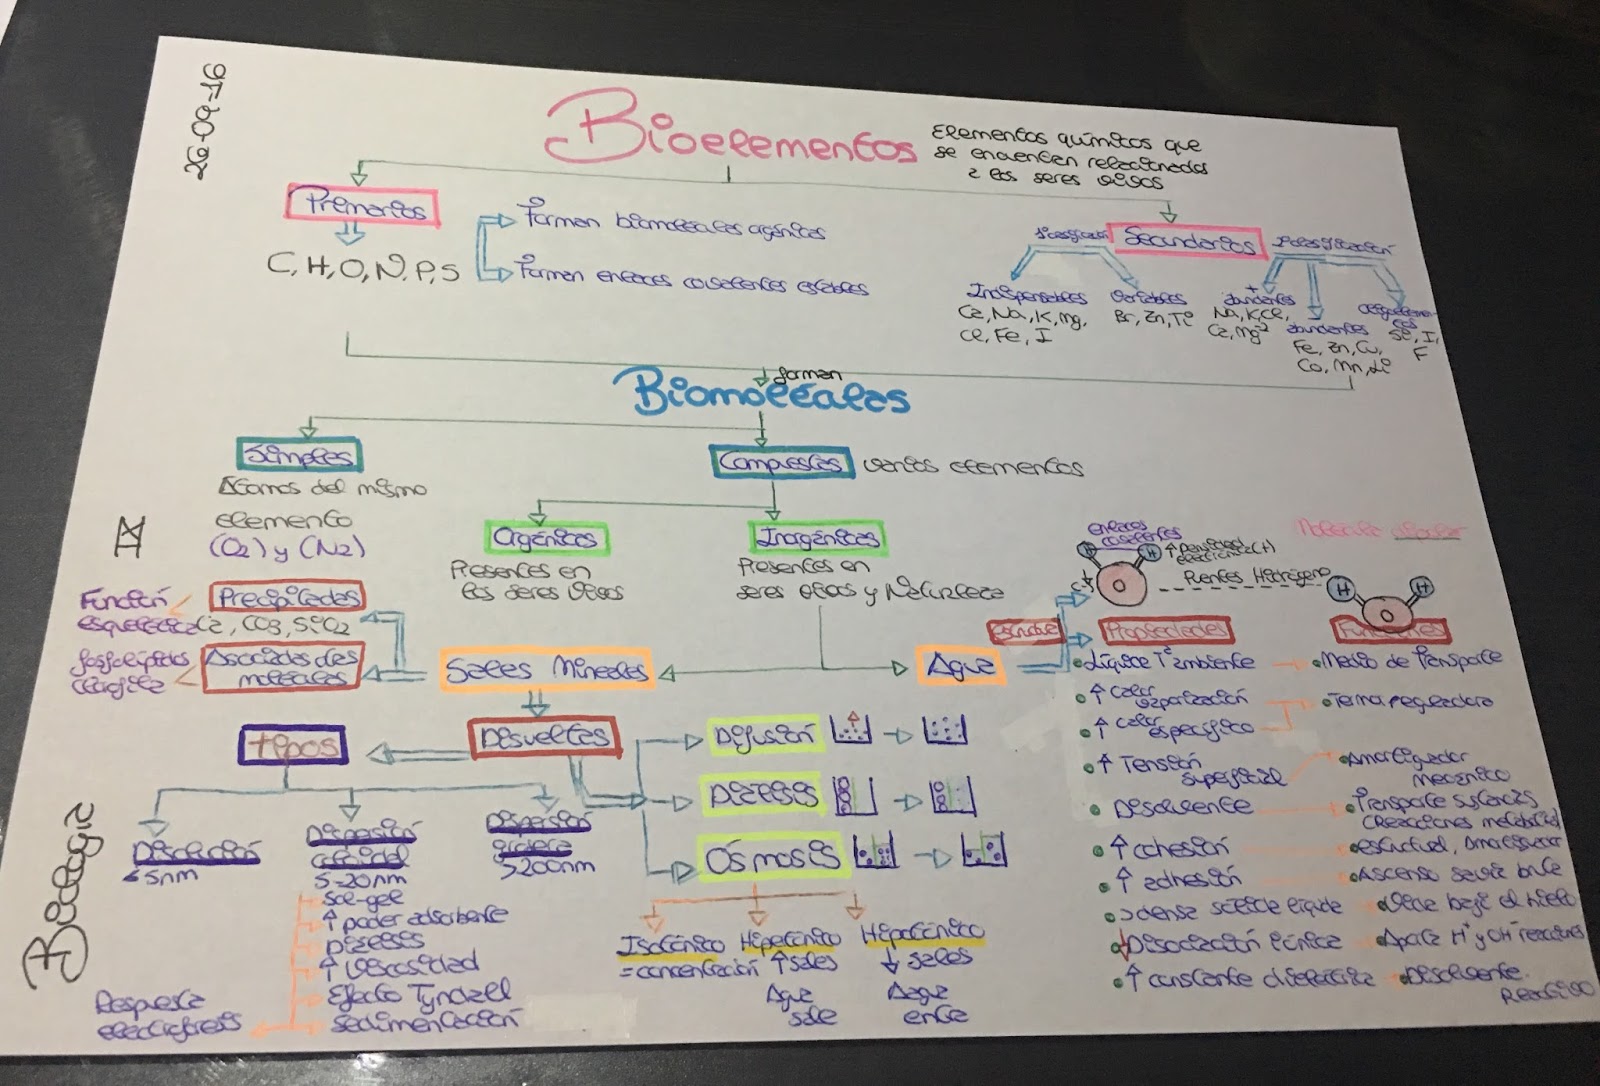 26-09-16
Bioelementos
Elementos químicos que
se encuentran relacionados
a los seres vivos
Primarios
C, H, O, N, P, S
Forman biomoléculas orgánicas
Forman enlaces covalentes estables
Secundarios
Indispensables
Ca, Na, K, Mg,
Cl, Fe, I
Variables
Br, Zn, Ti
+
abundantes
Na, K, Cl,
Ca, Mg
-
abundantes
Fe, Zn, Cu,
Co, Mn, Li
I,
F
forman
Biomoléculas
Simples
Átomos del mismo
elemento
(O2) y (N2)
Compuestas
varios elementos
Orgánicas
Presentes en
los seres vivos
Inorgánicas
Presentes en
seres vivos y Naturaleza
IX
Biología
Función
esquelética
Precipitadas
Ca, CO3, SiO2
fosfolípidos
Asociadas a
moléculas
Sales Minerales
Agua
enlaces
covalentes
H
H
O
Puentes Hidrógeno
Molécula dipolar
H
H
O
Estructura
Propiedades
Funciones
Líquida Tª ambiente
Medio de transporte
↑ calor
vaporización
↑ calor
específico
Termorreguladora
↑ Tensión
superficial
Amortiguador
mecánico
Disolvente
Transporte sustancias
(reacciones metabólicas)
↑ cohesión
esqueleto, amortiguador
↑ adhesión
Ascenso savia bruta
> densa sólida líquida
Vida bajo el hielo
↓ Disociación iónica
Aporta H+ y OH- reacciones
↑ constante dieléctrica
Disolvente.
Reactivo
tipos
Disueltas
Disolución
< 5nm
Dispersión
coloidal
5-20nm
Sol-gel
↑ poder adsorbente
Diálisis
↑ viscosidad
Efecto Tyndall
Sedimentación
Respuesta
electroforesis
Dispersión
grosera
>200nm
Difusión
Diálisis
Ósmosis
Isotónico
= concentración
Hipertónico
↑ sales
Agua
sale
Hipotónico
↓ sales
Agua
entra